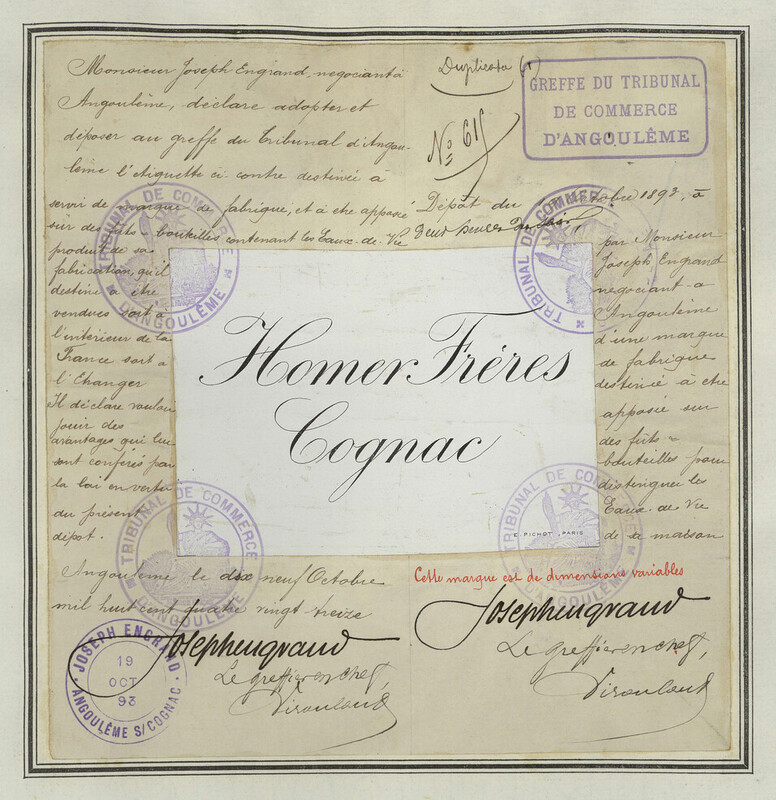 Monsieur Joseph Engrand, negociant à
Angoulême, déclare adopter et
déposer au greffe du Tribunal d'Angou-
lême l'étiquette ci-contre destinée à
servir de marque de fabrique, et à etre apposée
sur des fûts & bouteilles contenant les Eaux-de-Vie
produit de sa
fabrication, qu'il
destine à être
vendues soit à
l'intérieur de la
France soit à
l'Etranger
Il déclare vouloir
jouir des
avantages qui lui
sont conférés par
la loi en vertu
du présent
dépot.
Angoulême le dix neuf Octobre
mil huit cent quatre vingt treize
Josephengrand
Le greffier en chef,
JOSEPH ENGRAND
19
OCT
93
ANGOULÊME S/COGNAC
Duplicata
No 615
GREFFE DU TRIBUNAL
DE COMMERCE
D'ANGOULÊME
Dépôt du octobre 1893, à
deux heures
par Monsieur
Joseph Engrand
negociant à
Angoulême
d'une marque
de fabrique
destinée à etre
apposée sur
des fûts &
bouteilles pour
distinguer les
Eaux-de-Vie
de sa maison
Homer Fréres
Cognac
E. PICHOT, PARIS
Cette marque est de dimensions variables
Josephengrand
Le greffier en chef,
TRIBUNAL DE COMMERCE
D'ANGOULÊME
TRIBUNAL DE COMMER
TRIBUNAL DE COMMERCE
D'ANGOULÊME
TRIBUNAL DE COMMERCE
D'ANGOULÊME